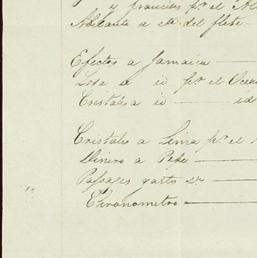 y francides pr. el Al
Adelante a cta del flete
Efectos a Jamaica
Loza a id pr. el Ocea
Cristales a id — id
Cristales a Lima pr. el
Dinero a Pede —
Passages gastos &c. —
Chronometro —